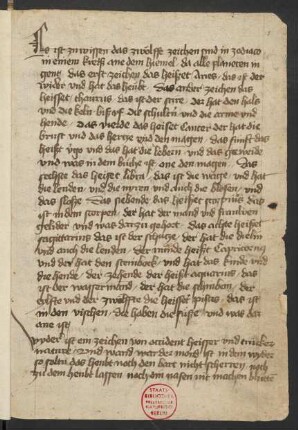 Es ist zu wissen das zwolffe zeichen sind in zodiaco
in einem kreiß ane dem himel da alle planeten in
gent das erst zeichen das heisset Aries das ist der
wider und hat das heubt Das ander zeichen das
heisset thaurus das ist der stire der hat den hals
und die keln biß uf die schultern und die arme und
hende Das vierde das heisset Cancer der hat die
brust und das hercze und den magen das funft das
heißt virgo und das hat die lebern und das
und was in dem buche ist one den magen Das
sechste das heisset libra das ist die wage und hat
die lenden und die nyren und auch die blosen und
das sloße Das sebende das heisset scorpius das
ist in dem scorpen der hat der mand und frauwen
gelider und was darzu gehort Das achste heisset
sagittarius das ist der schucze der hat die diehe
und auch die lenden Der nunde heisset Capricornus
und der hat den steinbock und hat das und
die hende der zehende der heist aquarius das
ist der wasserman der hat die schinbein der
eilfte und der zwolffte die heisset pisces das ist
in den vischen die haben die fusse und was dar
ane ist
Wyder ist ein zeichen von accident heisser und truckner
nature Und wan der mone ist in dem wyder
so soltu das heubt noch den bart nicht scherren noch
zu dem heubt lassen noch zu nasen nit machen blute
STAATS-
BIBLIOTHEK
BERLIN